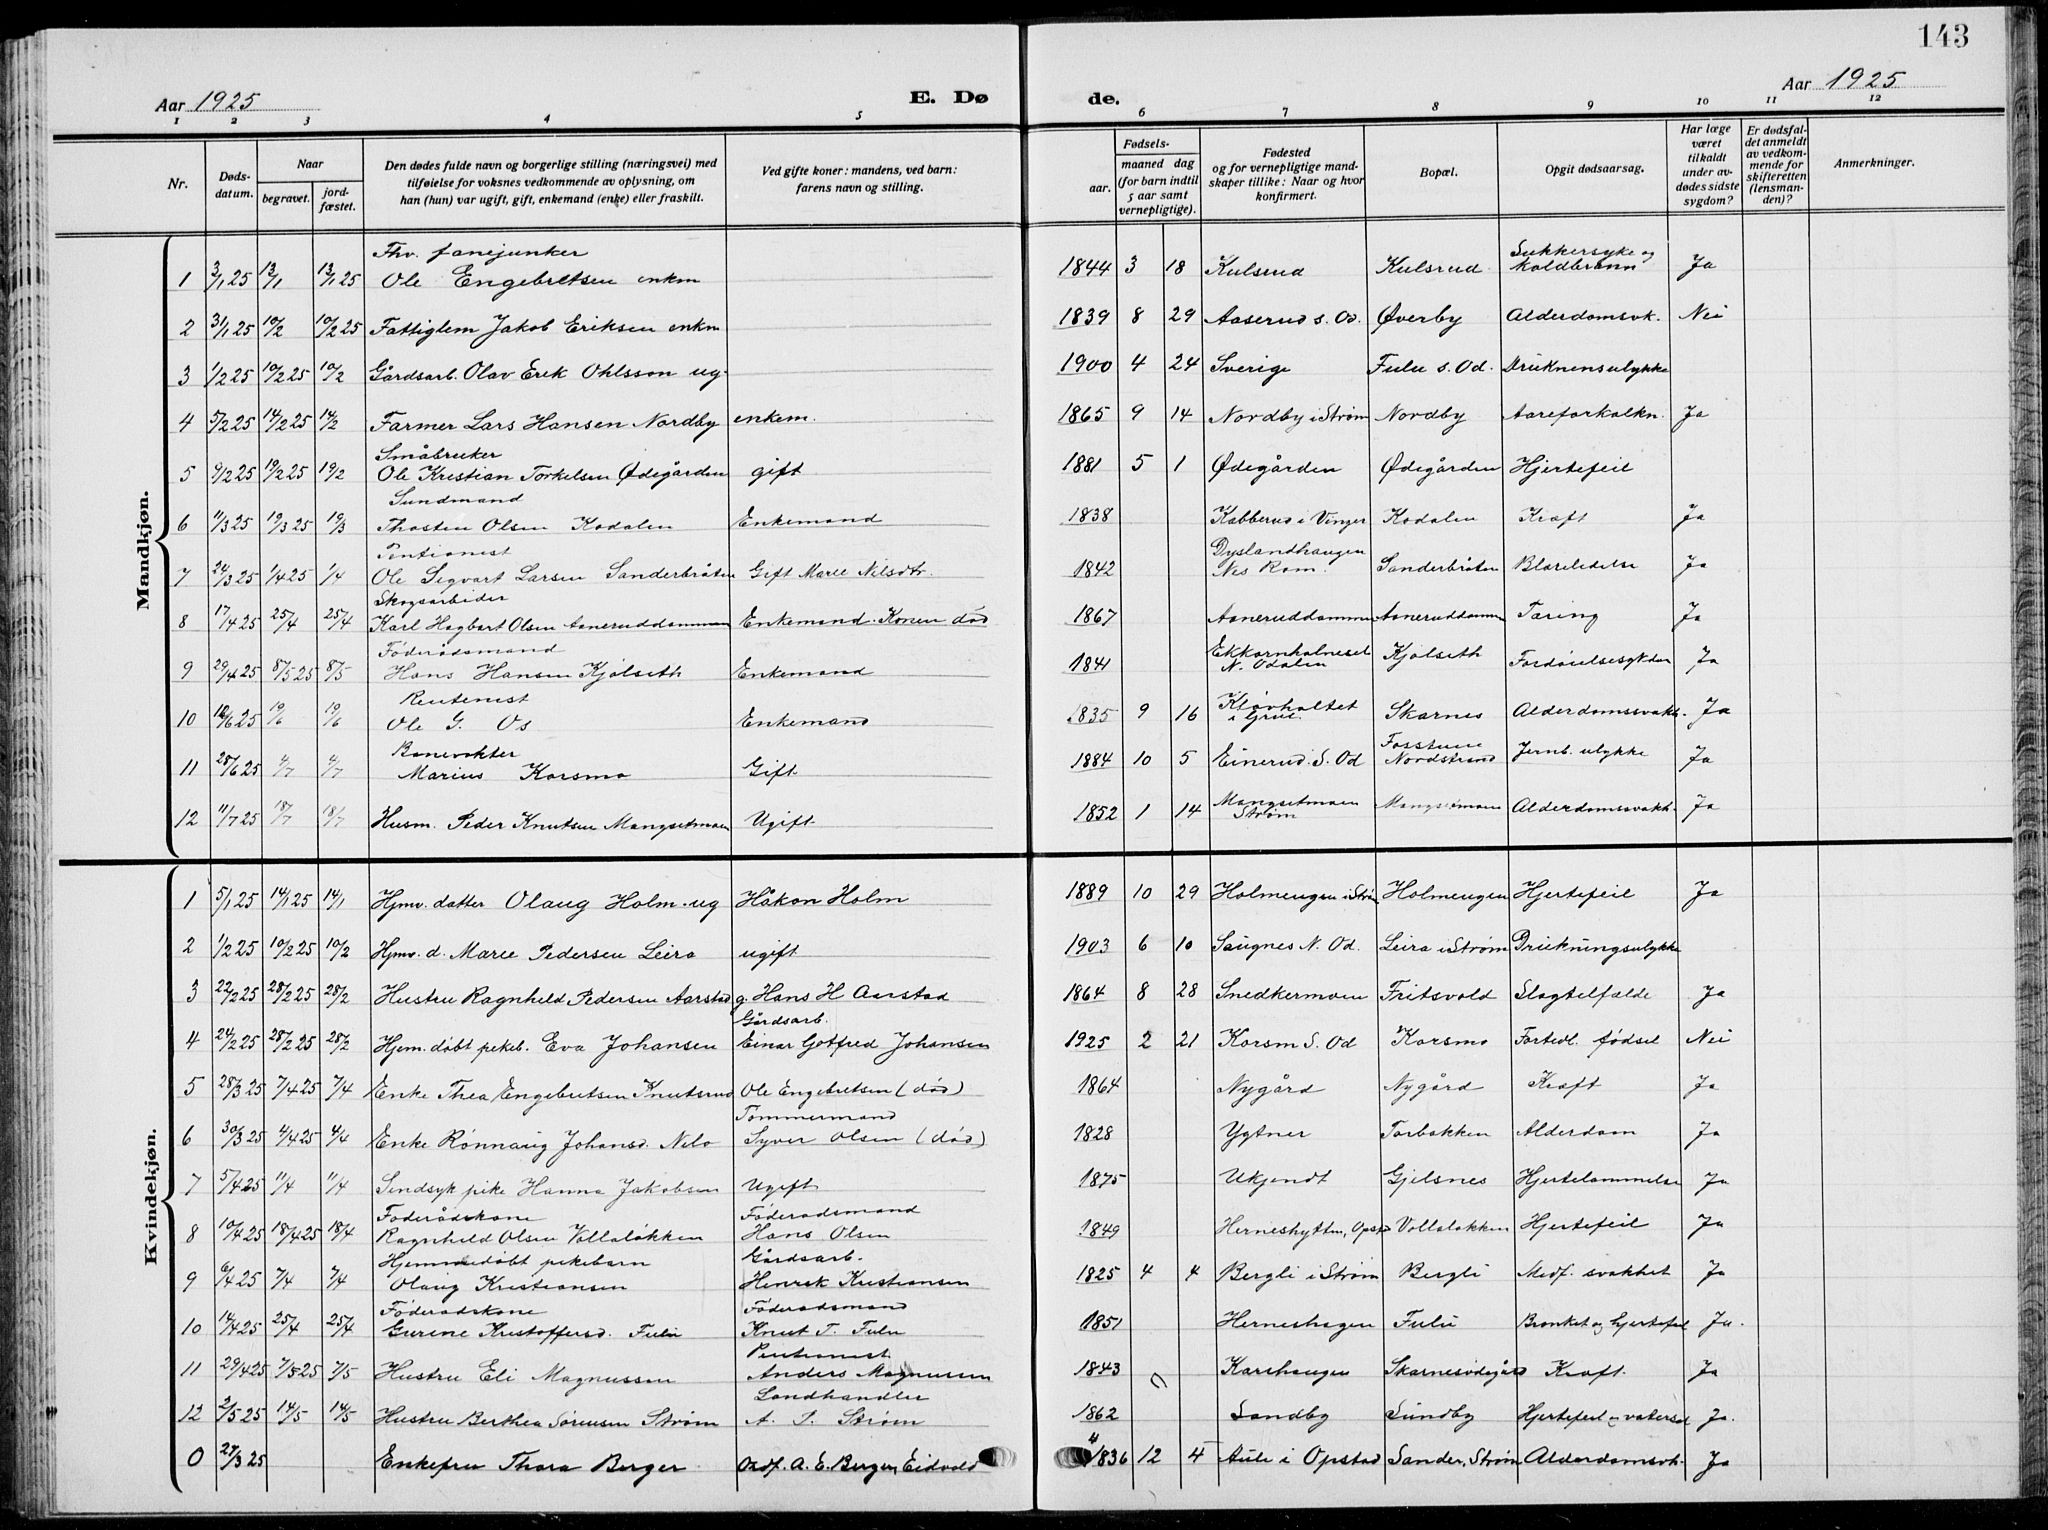 143
Aar 1925
E. Dø
de.
Aar 1925
1 2 3 4 5 6 7 8 9 10 11 12
Nr.
Døds-
datum.
Naar
begravet.
jord-
fæstet.
Den dødes fulde navn og borgerlige stilling (næringsvei) med
tilføielse for voksnes vedkommende av oplysning, om
han (hun) var ugift, gift, enkemand (enke) eller fraskilt.
Ved gifte koner: mandens, ved barn:
farens navn og stilling.
Fødsels-
aar.
maaned dag
(for barn indtil
5 aar samt
vernepligtige).
Fødested
og for vernepligtige mand-
skaper tillike: Naar og hvor
konfirmert.
Bopæl.
Opgit dødsaarsag.
Har læge
været
tilkaldt
under av-
dødes sidste
sygdom?
Er dødsfal-
det anmeldt
av vedkom-
mende for
skifteretten
(lensman-
den)?
Anmerkninger.
Mandkjøn.
Thv. fanejunker
1 3/1 25 13/1 13/1 25 Ole Engebretsen enkm 1844 3 18 Kulsrud Kulsrud Sukkersyke og koldbrann Ja
2 31/1 25 10/2 10/2 25 Fattiglem Jakob Eriksen enkm 1839 8 29 Aaserud s. Od. Øverby Alderdomsvk. Nei
3 1/2 25 10/2 25 10/2 Gårdsarb. Olav Erik Ohlsson ug. 1900 4 24 Sverige Fulu s. Od. Druknensulykke
4 5/2 25 14/2 25 14/2 Farmer Lars Hansen Nordby enkem. 1865 9 14 Nordby i Strøm Nordby Aareforkalkn. Ja
Småbruker
5 9/2 25 19/2 25 19/2 Ole Kristian Torkelsen Ødegården gift 1881 5 1 Ødegården Ødegården Hjertefeil
Sundmand
6 11/3 25 19/3 25 19/3 Thosten Olsen Kodalen Enkemand 1838 Kabberud i Vinger Kodalen Kræft Ja
Pentionist
7 24/3 25 1/4 25 1/4 Ole Segvart Larsen Sanderbråten Gift Marie Nilsdtr. 1842 Dyslandhaugen Nes Rom. Sanderbråten Blæreledelse Ja
Skogsarbider
8 17/4 25 25/4 25/4 Karl Hagbart Olsen Aaneruddammen Enkemand. Konen död 1867 Aaneruddammen Aaneruddammen Tæring Ja
Föderådsmand
9 29/4 25 8/5 25 8/5 Hans Hansen Kjølseth Enkemand 1841 Ekkornholneset N. Odalen Kjølseth Fordøielsesygdom Ja
Rentenist
10 12/6 25 19/6 19/6 Ole G. Os Enkemand 1835 9 16 Kløvholtet i Grue. Skarnes Alderdomssvakh. Ja
Banevokter
11 28/6 25 4/7 4/7 Marius Korsmo Gift 1884 10 5 Einerud. S. Od Fosstune Nordstrand Jernb. ulykke Ja
12 11/7 25 18/7 18/7 Husm. Peder Knutsen Mangsetmoen Ugift 1852 1 14 Mangsetmoen Strøm Mangsetmoen Alderdomssvakh. Ja
Kvindekjøn.
1 5/1 25 14/1 25 14/1 Hjmv. datter Olaug Holm. ug Håkon Holm 1889 10 29 Holmengen i Strøm Holmengen Hjertefeil Ja
2 1/2 25 10/2 25 10/2 Hjmv. d. Marie Pedersen Leira ugift 1903 6 10 Saugnes N. Od. Leira i Strøm Drukningsulykke
3 22/2 25 28/2 25 28/2 Hustru Ragnhild Pedersen Aarstad g. Hans H Aarstad 1864 8 28 Snedkermoen Fritsvold Slagtelfælde Ja
Gårdsarb.
4 24/2 25 28/2 25 28/2 Hjem. døbt pikeb. Eva Johansen Einar Gotfred Johansen 1925 2 21 Korsm S. Od Korsmo Fortidl. fødsel Nei
5 28/3 25 7/4 25 7/4 Enke Thea Engebretsen Knutsrud Ole Engebretsen (död) 1864 Nygård Nygård Kræft Ja
Tømmermand
6 30/3 25 4/4 25 4/4 Enke Rønnaug Johansd. Nilo Syver Olsen (död) 1828 Ygtner Torbakken Alderdom Ja
7 5/4 25 11/4 11/4 Sindsyk pike Hanna Jakobsen Ugift 1875 Ukjendt Gjelsnes Hjertelammelse Ja
Föderådskone Föderadsmand
8 10/4 25 18/4 25 18/4 Ragnhild Olsen Vollaløkken Hans Olsen 1849 Herneshytten, Opstad Vollaløkken Hjertefeil Ja
Hjemmedöbt pikebarn Gårdsarb.
9 6/4 25 7/4 7/4 Olaug Kristiansen Henrik Kristiansen 1825 4 4 Bergli i Strøm Bergli Medf. svakhet Ja
Föderadskone Föderadsmand
10 14/4 25 25/4 25/4 Gurine Kristoffersd. Fulu Knut T. Fulu 1851 Herneshagen Fulu Bronket og hjertefeil Ja.
Pentionist
11 29/4 25 7/5 25 7/5 Hustru Eli Magnussen Anders Magnussen 1843 Karshaugen Skarnesødegård Kræft Ja
Landhandler
12 2/5 25 14/5 14/5 Hustru Berthea Sørensen Strøm A. P. Strøm 1862 Sandby Sundby Hjertefeil og vatersot Ja.
0 27/3 25 Enkefru Thora Berger Ordf. A. E. Berger, Eidvold 1836 12 4 Aule i Opstad Sander, Strøm Alderdomsvk. Ja